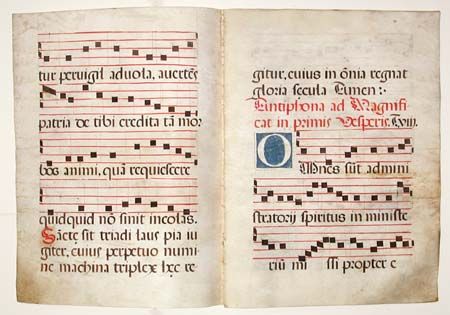 tur peruigil aduola, auertẽs
patria de tibi credita tã mor
bos animi, quã requiescere
quidquid nõ sinit incolas.
Sãcte sit triadi laus pia iu
giter, cuius perpetuo numi
ne machina triplex hæc re
gitur, cuius in õnia regnat
gloria secula Amen :.
Antiphona ad Magnifi
cat in primis Vesperis.
OMNES sũt admini
stratorij spiritus in ministe
riũ mi ssi propter e